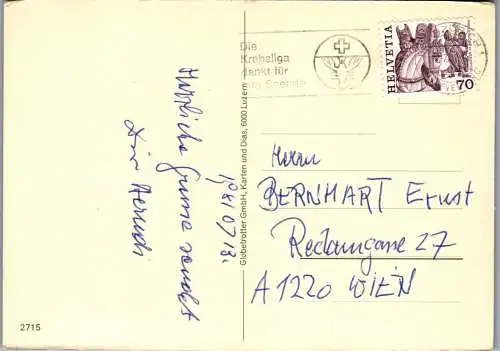 Die
Krebsliga
dankt für
Ihre Spende
HELVETIA
70
Herrn
BERNHART Ernst
Reclamgasse 27
A 1220 WIEN
Herzliche Grüsse sendet
Dir
1981 07 18.
Globetrotter GmbH, Karten und Dias, 6000 Luzern
2715